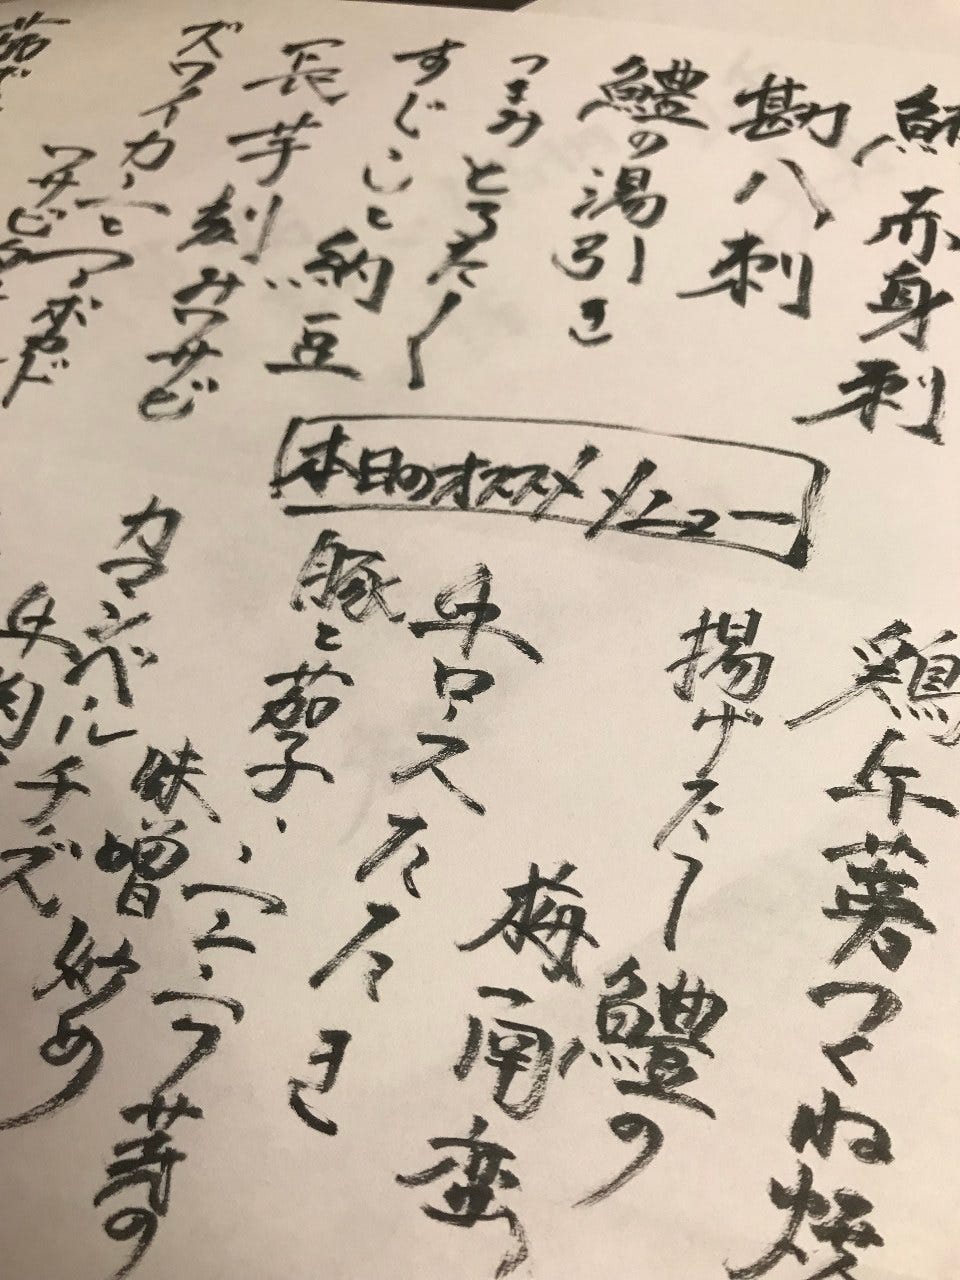 鮪赤身刺
勘八刺
鱧の湯引き
つまみとろたく
すじこと納豆
長芋刻みワサビ
ズワイカニとアボカド
ワサビ
本日のオススメメニュー
鶏牛蒡つくね焼
揚げたし鱧の
梅南蛮
牛ロースたたき
豚と茄子、ニンニク芽の
味噌炒め
カマンベールチーズ
牛肉